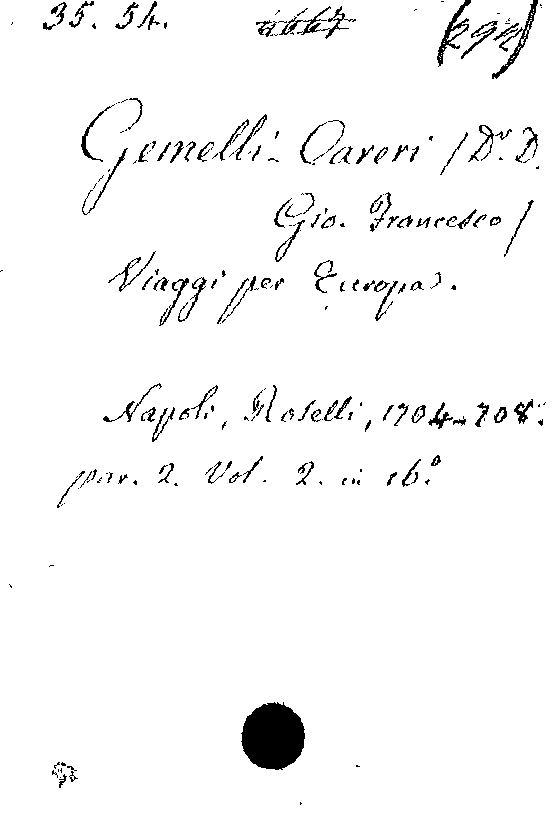 35. 54. 4667 (292)
Gemelli-Careri /Dr. D.
Gio. Francesco/
Viaggi per Europa.
Napoli, Roselli, 1704-708.
par. 2. Vol. 2. in 16.º